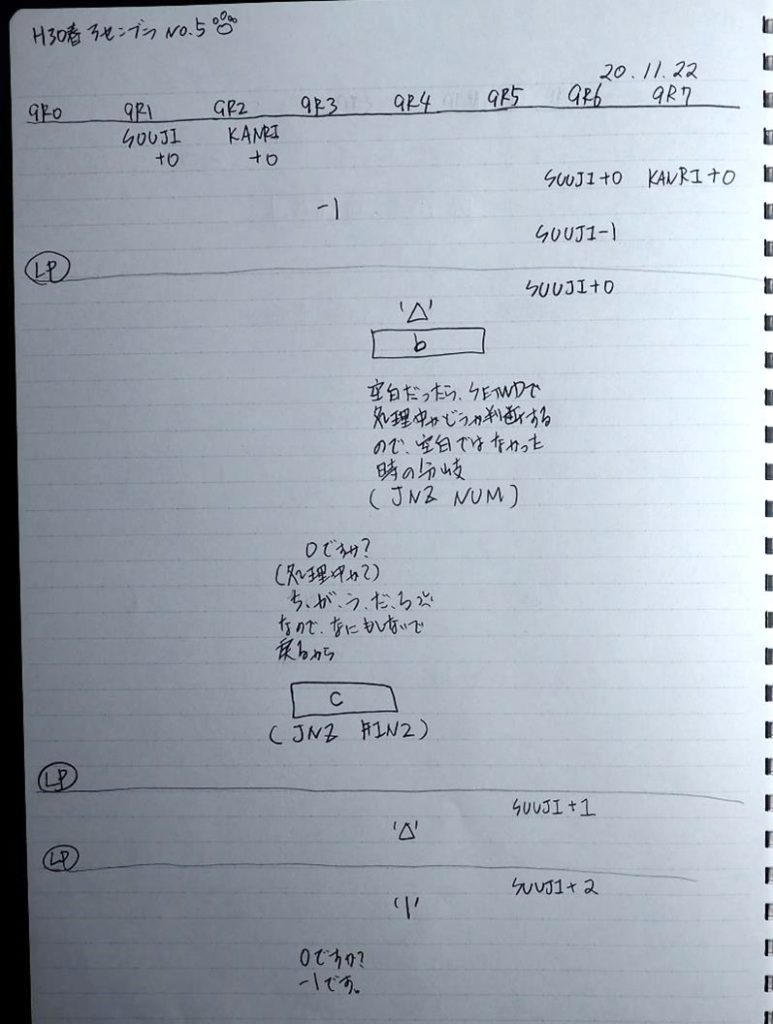 H30春 アセンブラ NO.5
20.11.22
GR0 GR1 GR2 GR3 GR4 GR5 GR6 GR7
SUUJI KANRI
+0 +0
SUUJI+0 KANRI+0
-1
SUUJI-1
LP
SUUJI+0
'△'
b
空白だったら、SETWDで
処理中かどうか判断する
ので、空白ではなかった
時の分岐
(JNZ NUM)
0ですか?
(処理中か?)
ち、が、う、だ、ろ
なので、なにもしないで
戻るから
C
(JNZ FIN2)
LP
SUUJI+1
'△'
LP
SUUJI+2
'1'
0ですか?
-1です。